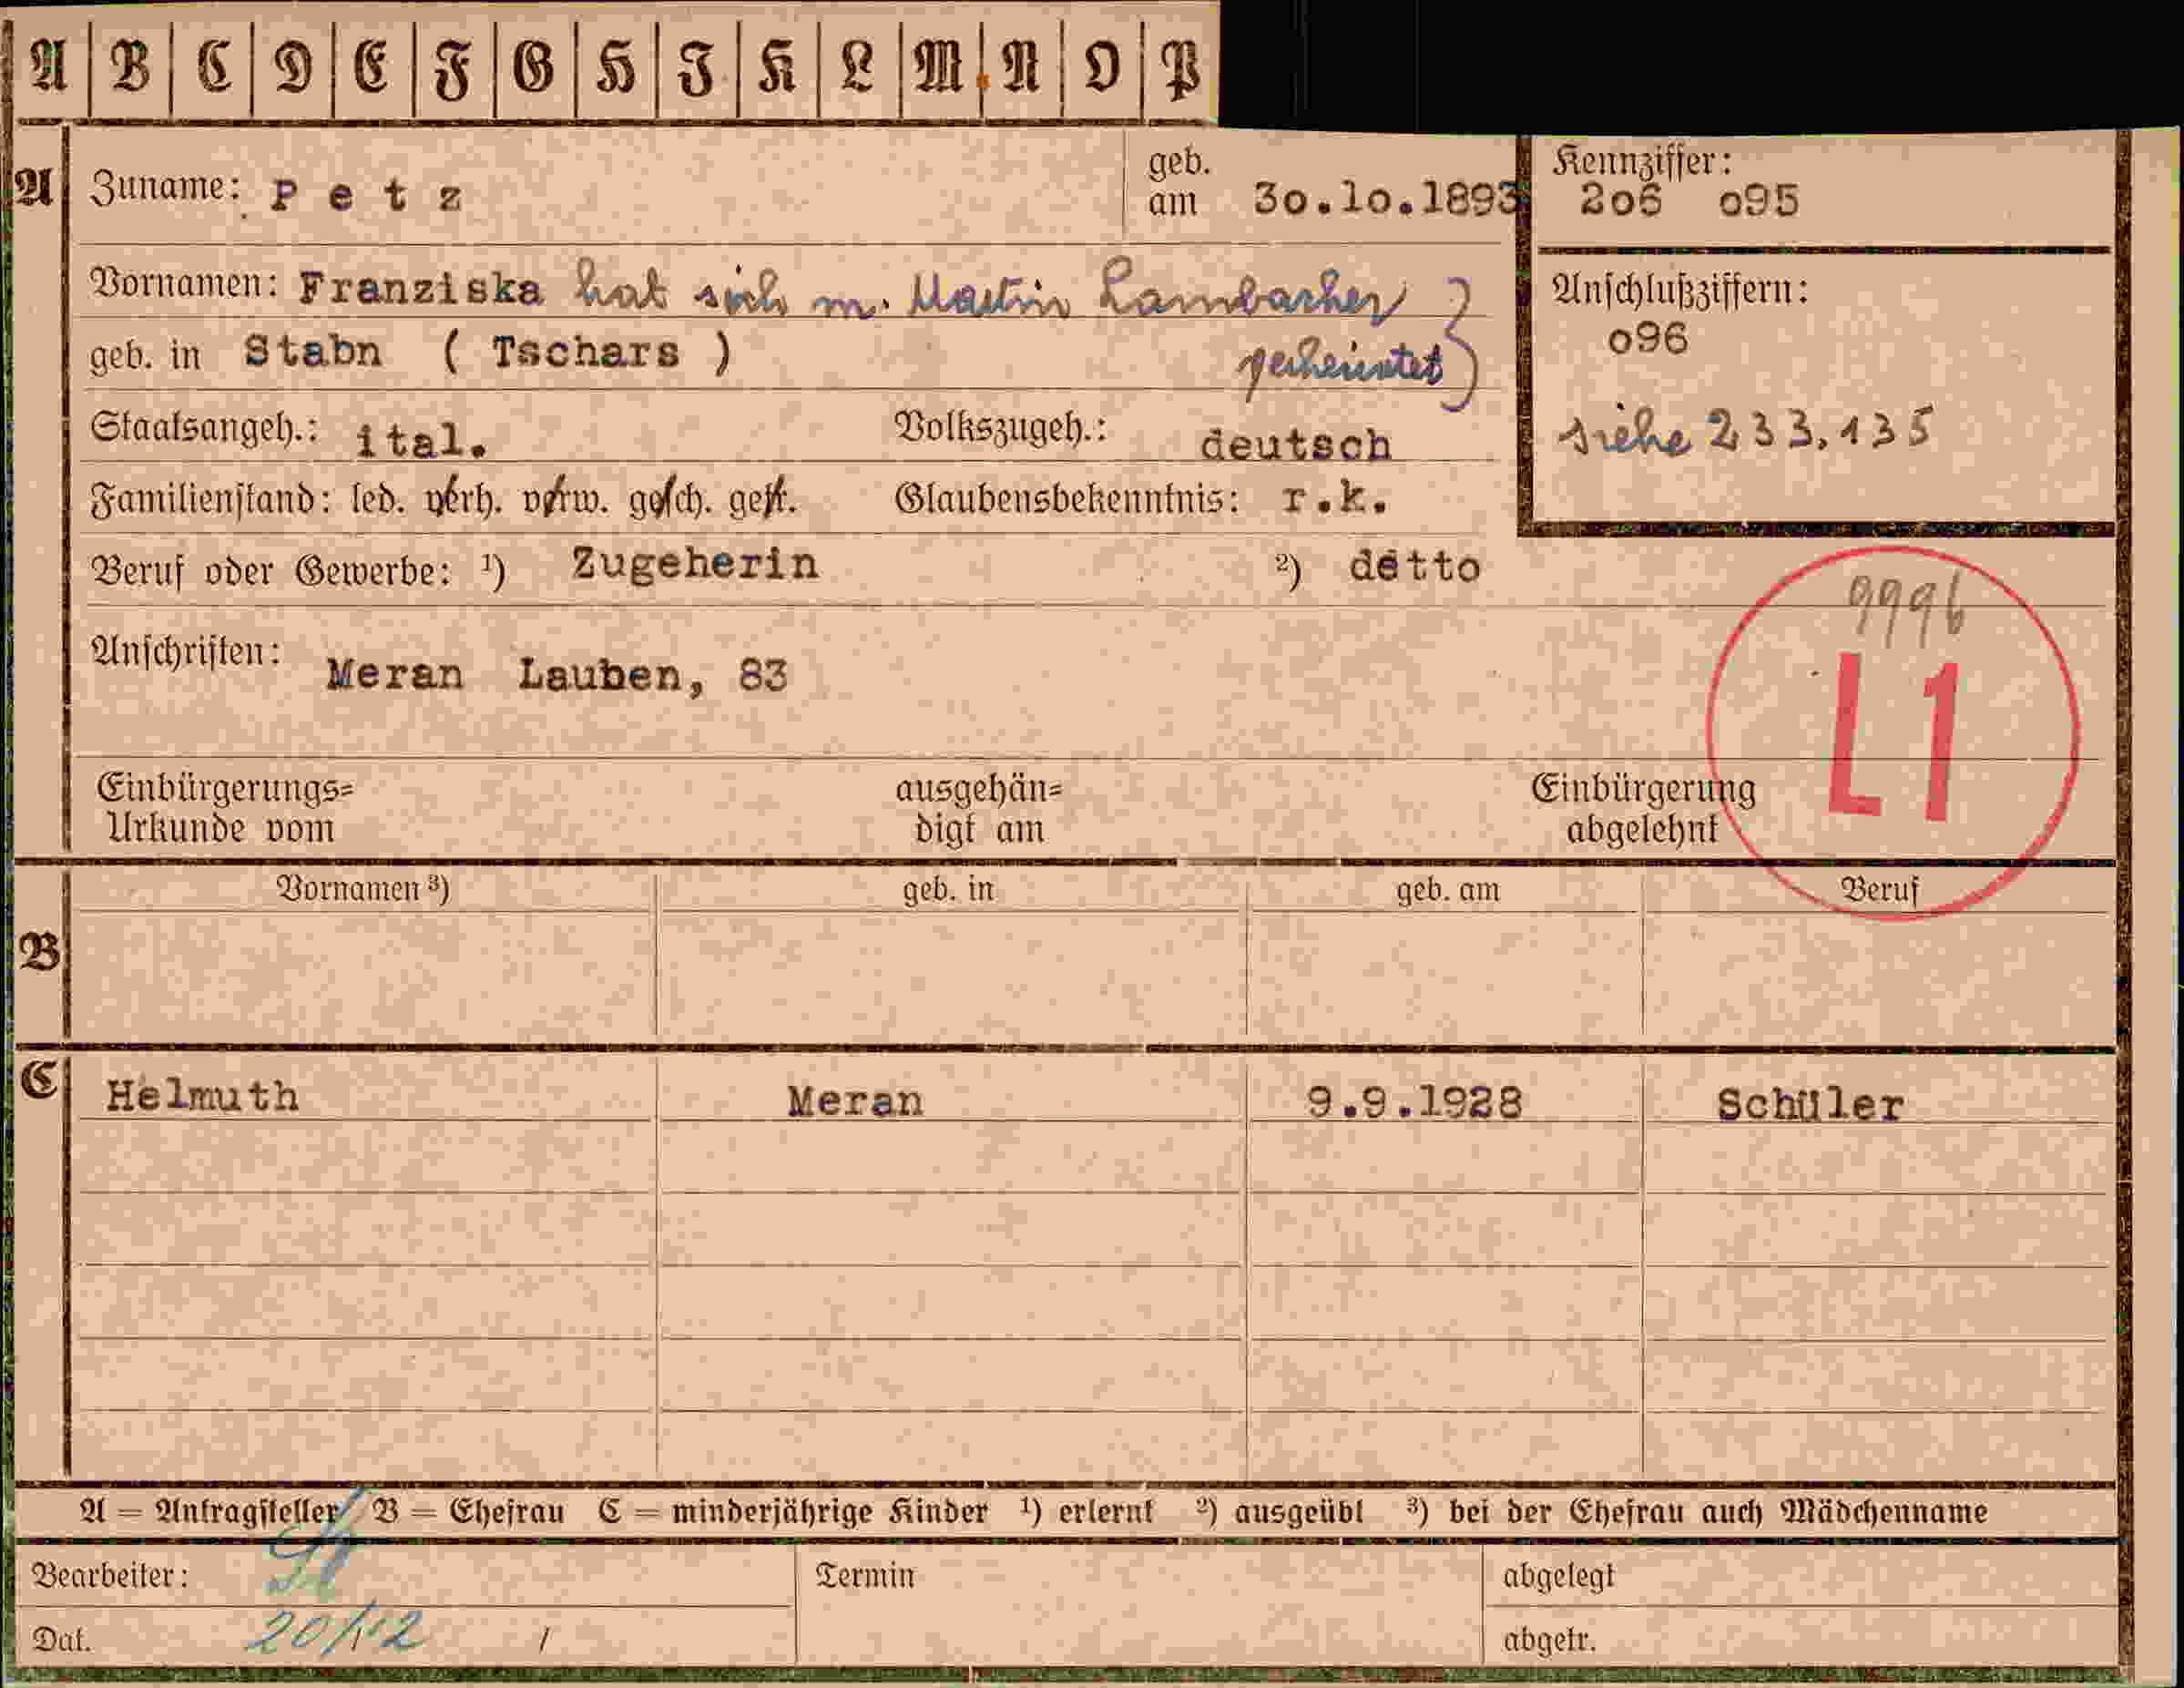 A B C D E F G H J K L M N O P
A Zuname: P e t z geb. am 30.10.1893 Kennziffer: 206 095
Vornamen: Franziska hat sich m. Martin Lambacher
verheiratet
geb. in Stabn ( Tschars )
Anschlußziffern:
096
siehe 233.135
Staatsangeh.: ital. Volkszugeh.: deutsch
Familienstand: led. verh. verw. gesch. getr. Glaubensbekenntnis: r.k.
Beruf oder Gewerbe: ¹) Zugeherin ²) detto
9996
L1
Anschriften: Meran Lauben, 83
Einbürgerungs= ausgehän= Einbürgerung
Urkunde vom digt am abgelehnt
Vornamen ³) geb. in geb. am Beruf
B
C Helmuth Meran 9.9.1928 Schüler
A = Antragsteller B = Ehefrau C = minderjährige Kinder ¹) erlernt ²) ausgeübt ³) bei der Ehefrau auch Mädchenname
Bearbeiter: Termin abgelegt
Dat. 20/12 / abgetr.